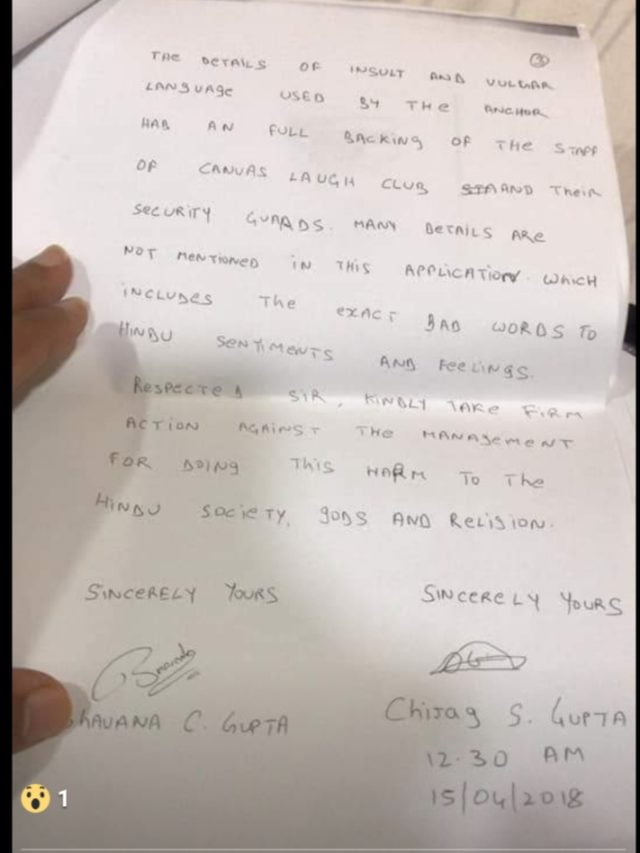 3
THE DETAILS OF INSULT AND VULGAR
LANGUAGE USED BY THE ANCHOR
HAD AN FULL BACKING OF THE STAFF
OF CANVAS LAUGH CLUB AND THEIR
SECURITY GUARDS. MANY DETAILS ARE
NOT MENTIONED IN THIS APPLICATION WHICH
INCLUDES THE EXACT BAD WORDS TO
HINDU SENTIMENTS AND FEELINGS.
RESPECTED SIR, KINDLY TAKE FIRM
ACTION AGAINST THE MANAGEMENT
FOR DOING THIS HARM TO THE
HINDU SOCIETY, GODS AND RELIGION.
SINCERELY YOURS
SINCERELY YOURS
C. GUPTA
Chirag S. GUPTA
12.30 AM
15/04/2018
1